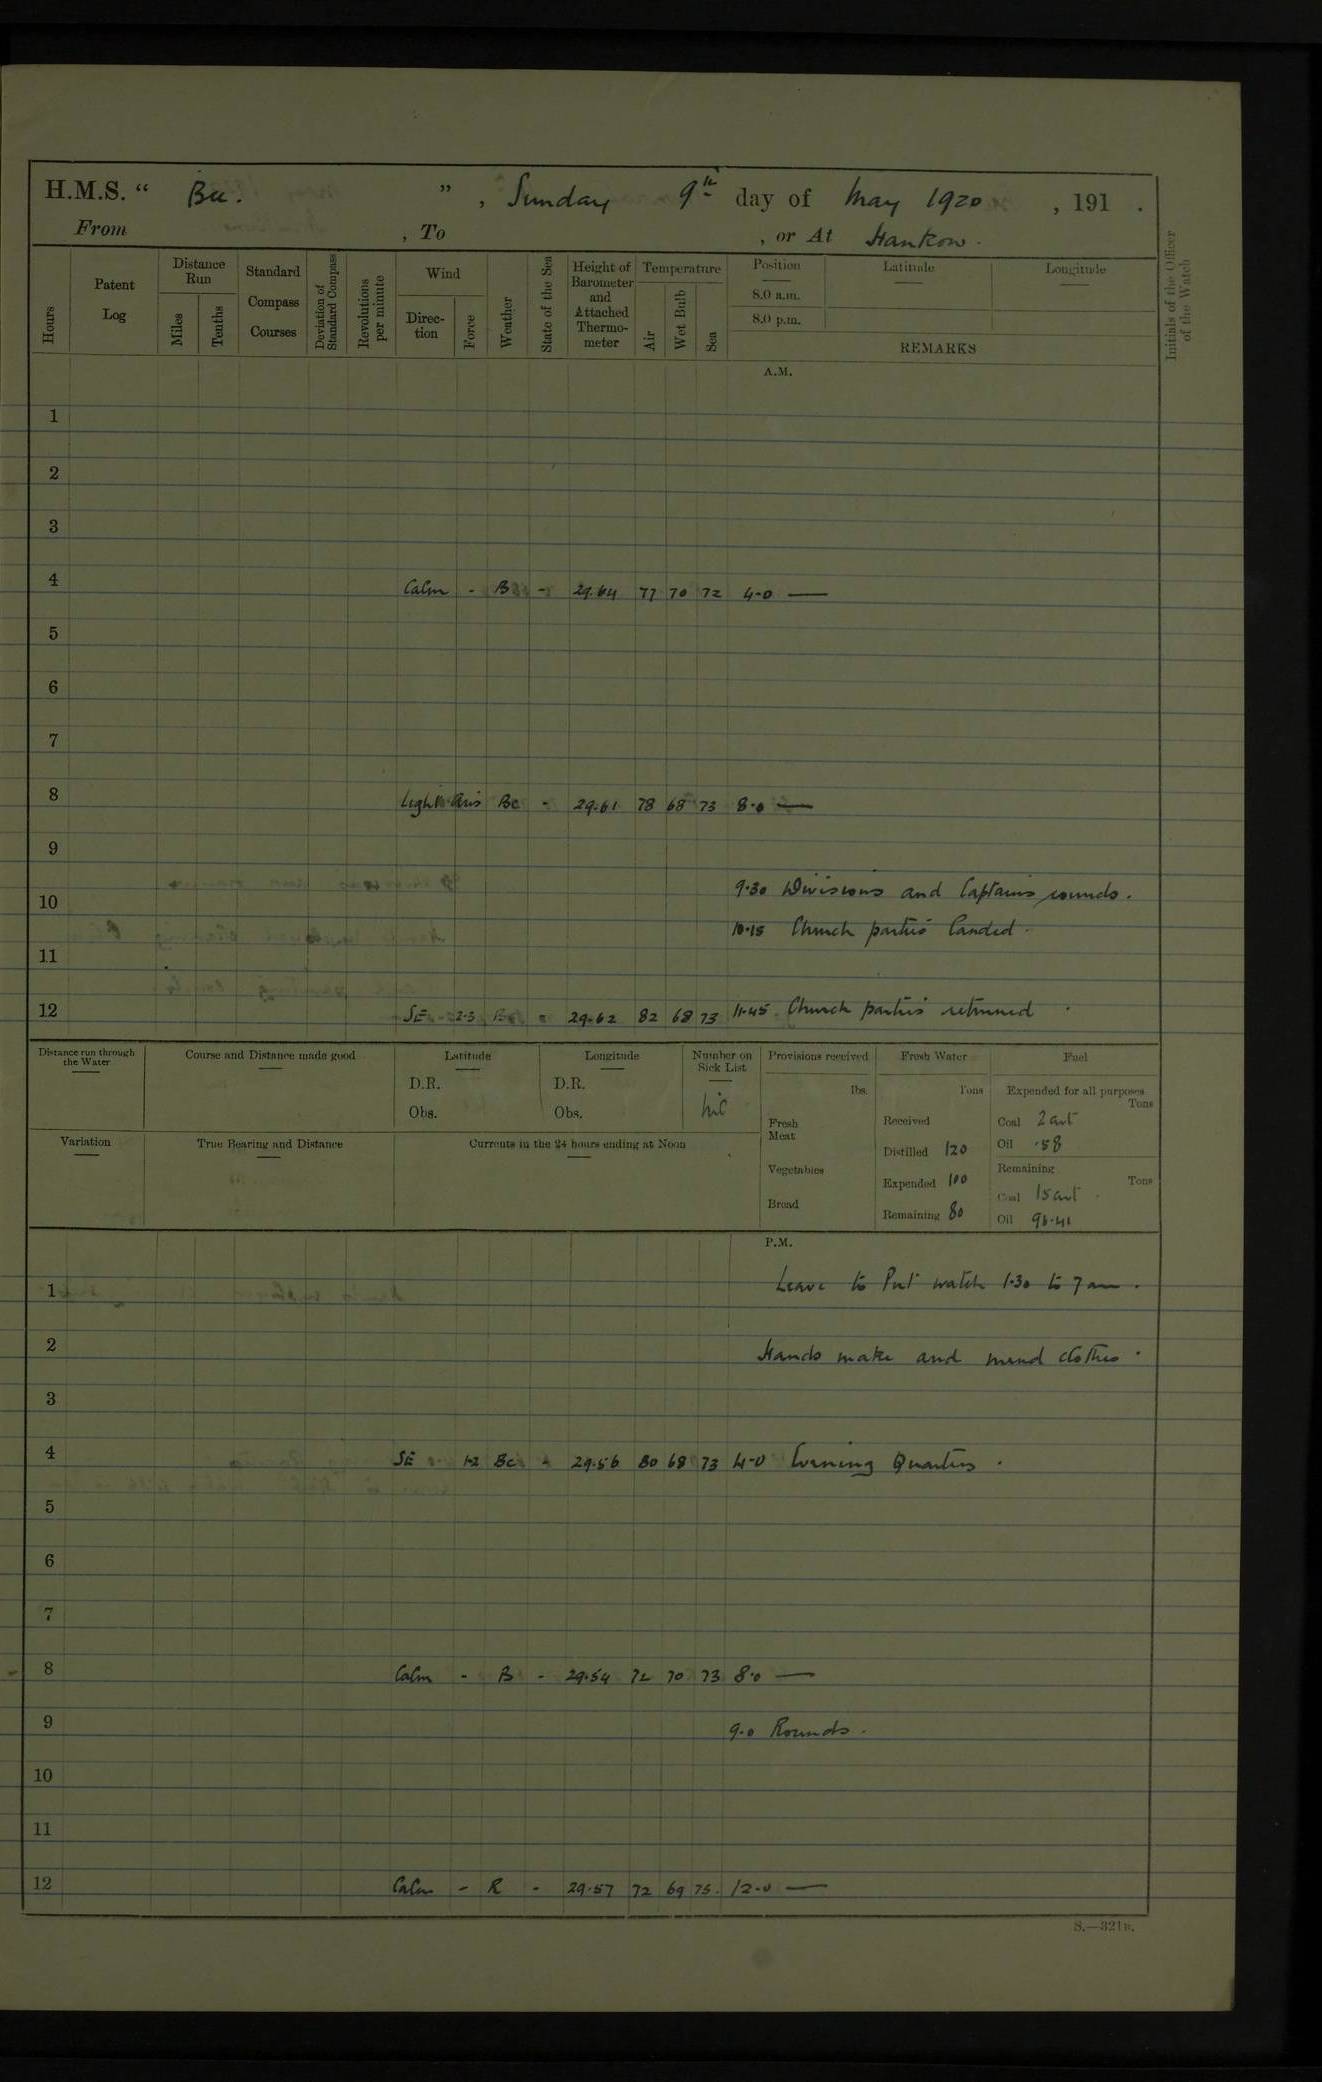 H.M.S. “ Bee. ” , Sunday 9th day of May 1920 , 191 .
From , To , or At Hankow.
Hours
Patent Log
Distance Run
Miles
Tenths
Standard Compass Courses
Deviation of Standard Compass
Revolutions per minute
Wind
Direc- tion
Force
Weather
State of the Sea
Height of Barometer and Attached Thermo- meter
Temperature
Air
Wet Bulb
Sea
Position
8.0 a.m.
8.0 p.m.
Latitude
Longitude
REMARKS
Initials of the Officer of the Watch
A.M.
1
2
3
4 Calm - B - 29.64 77 70 72 4-0 —
5
6
7
8 Light Airs Bc - 29.61 78 68 73 8.0 —
9
9.30 Divisions and Captains rounds.
10
10.15 Church parties landed.
11
12 SE 2.3 Bc - 29.62 82 68 73 11.45 Church parties returned
Distance run through the Water
Course and Distance made good
Latitude
D.R.
Obs.
Longitude
D.R.
Obs.
Number on Sick List
nil
Provisions received
lbs.
Fresh Meat
Vegetables
Bread
Fresh Water
Tons
Received
Distilled 120
Expended 100
Remaining 80
Fuel
Expended for all purposes
Tons
Coal 2 cwt
Oil .58
Remaining
Tons
Coal 15 cwt
Oil 96.41
Variation
True Bearing and Distance
Currents in the 24 hours ending at Noon
P.M.
1 Leave to Port watch 1.30 to 7 am.
2 Hands make and mend clothes.
3
4 SE 1-2 Bc - 29.56 80 68 73 4-0 Evening Quarters.
5
6
7
8 Calm - B - 29.54 72 70 73 8.0 —
9 9.0 Rounds.
10
11
12 Calm - R - 29.57 72 69 75. 12-0 —
S.—321B.